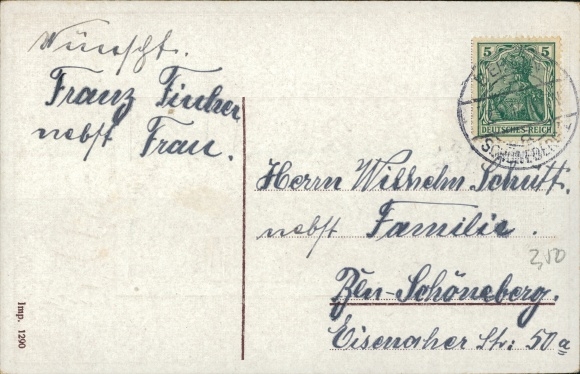 Wünscht.
Franz Fischer
nebst Frau.
5 5
DEUTSCHES REICH
SCHÖNEBERG
Herrn Wilhelm Schütt.
nebst Familie.
2,50
Bln-Schöneberg.
Eisenacher Str: 50a
Imp. 1290